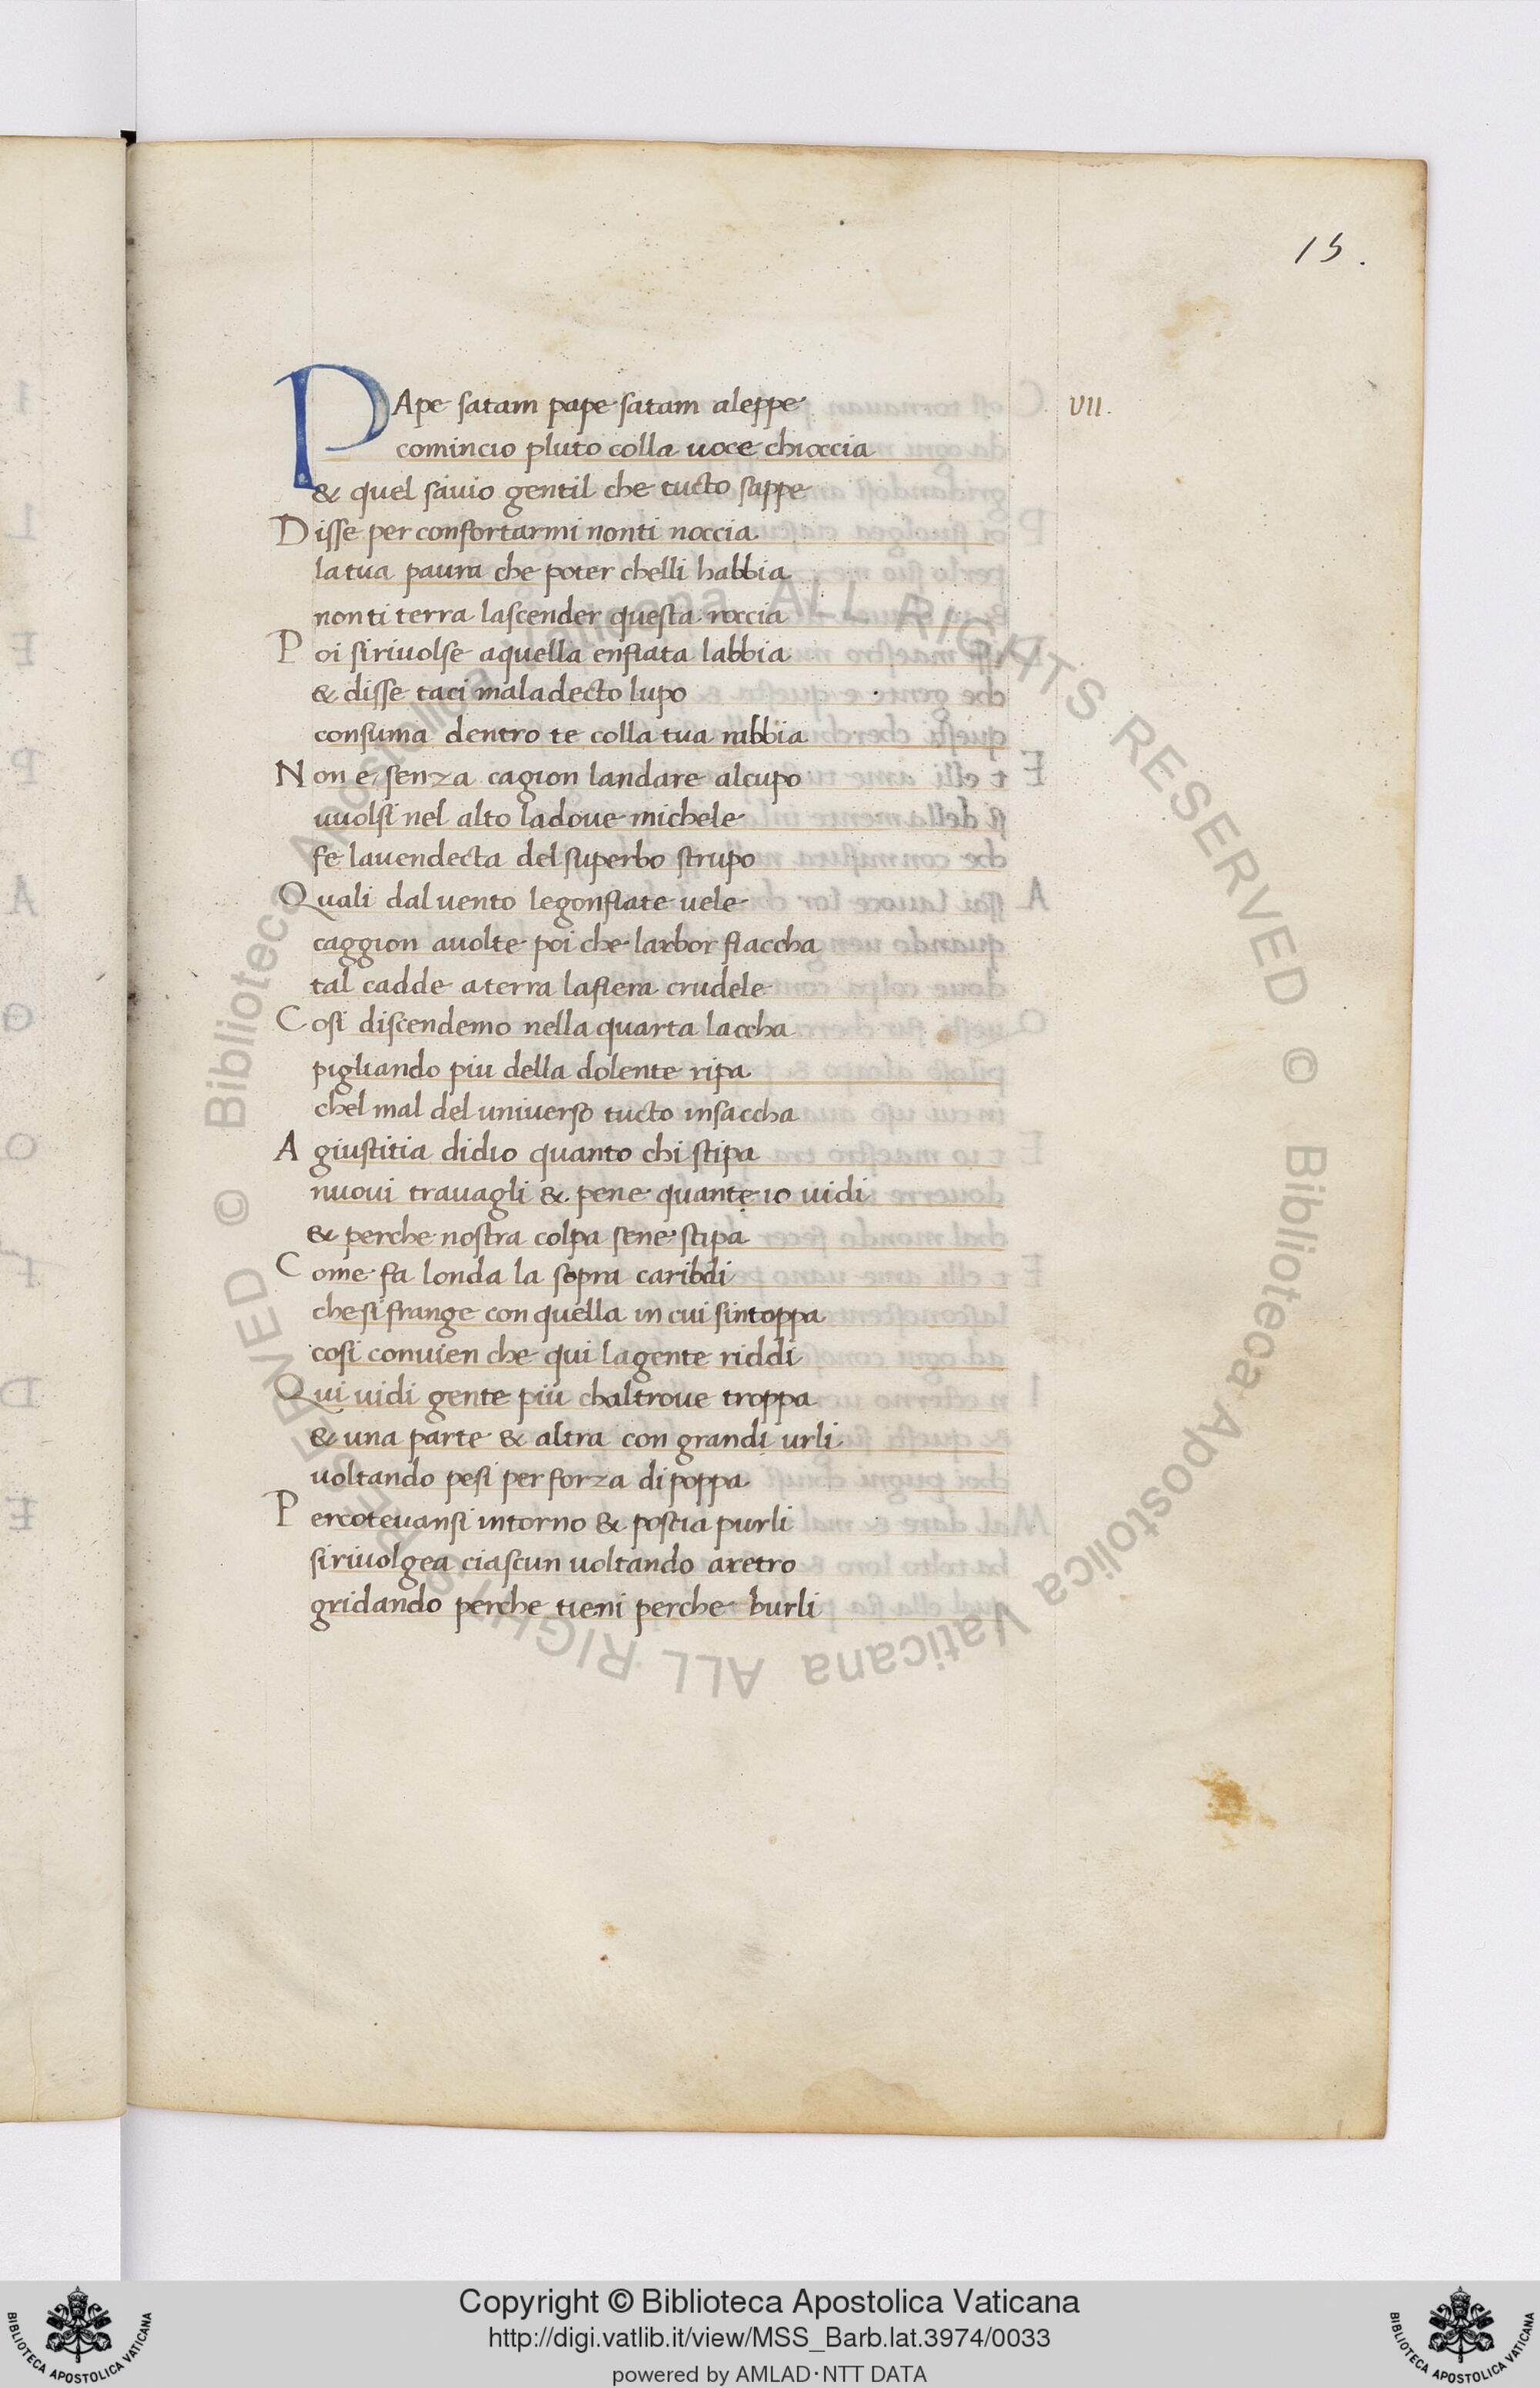 15.
VII.
PApe satam pape satam aleppe
comincio pluto colla uoce chioccia
& quel sauio gentil che tucto sappe
Disse per confortarmi nonti noccia
la tua paura che poter chelli habbia
non ti terra lascender questa roccia
Poi si riuolse aquella enfiata labbia
& disse taci maladecto lupo
consuma dentro te colla tua rabbia
Non e senza cagion landare alcupo
uuolsi nel alto ladoue michele
fe lauendecta del superbo strupo
Quali dal uento legonfiate uele
caggion auolte poi che larbor fiaccha
tal cadde aterra lafiera crudele
Cosi discendemo nella quarta laccha
pigliando piu della dolente ripa
chel mal del uniuerso tucto insaccha
A giustitia didio quanto chi stipa
nuoui trauagli & pene quante io uidi
& perche nostra colpa sene stipa
Come fa londa la sopra caribdi
che si frange con quella in cui sintoppa
cosi conuien che qui lagente riddi
Qui uidi gente piu chaltroue troppa
& una parte & altra con grandi urli
uoltando pesi per forza di poppa
Percoteuansi intorno & poscia purli
si riuolgea ciascun uoltando aretro
gridando perche tieni perche burli
© Biblioteca Apostolica Vaticana ALL RIGHTS RESERVED © Biblioteca Apostolica Vaticana ALL RIGHTS RESERVED
BIBLIOTECA APOSTOLICA VATICANA
Copyright © Biblioteca Apostolica Vaticana
http://digi.vatlib.it/view/MSS_Barb.lat.3974/0033
powered by AMLAD·NTT DATA
BIBLIOTECA APOSTOLICA VATICANA